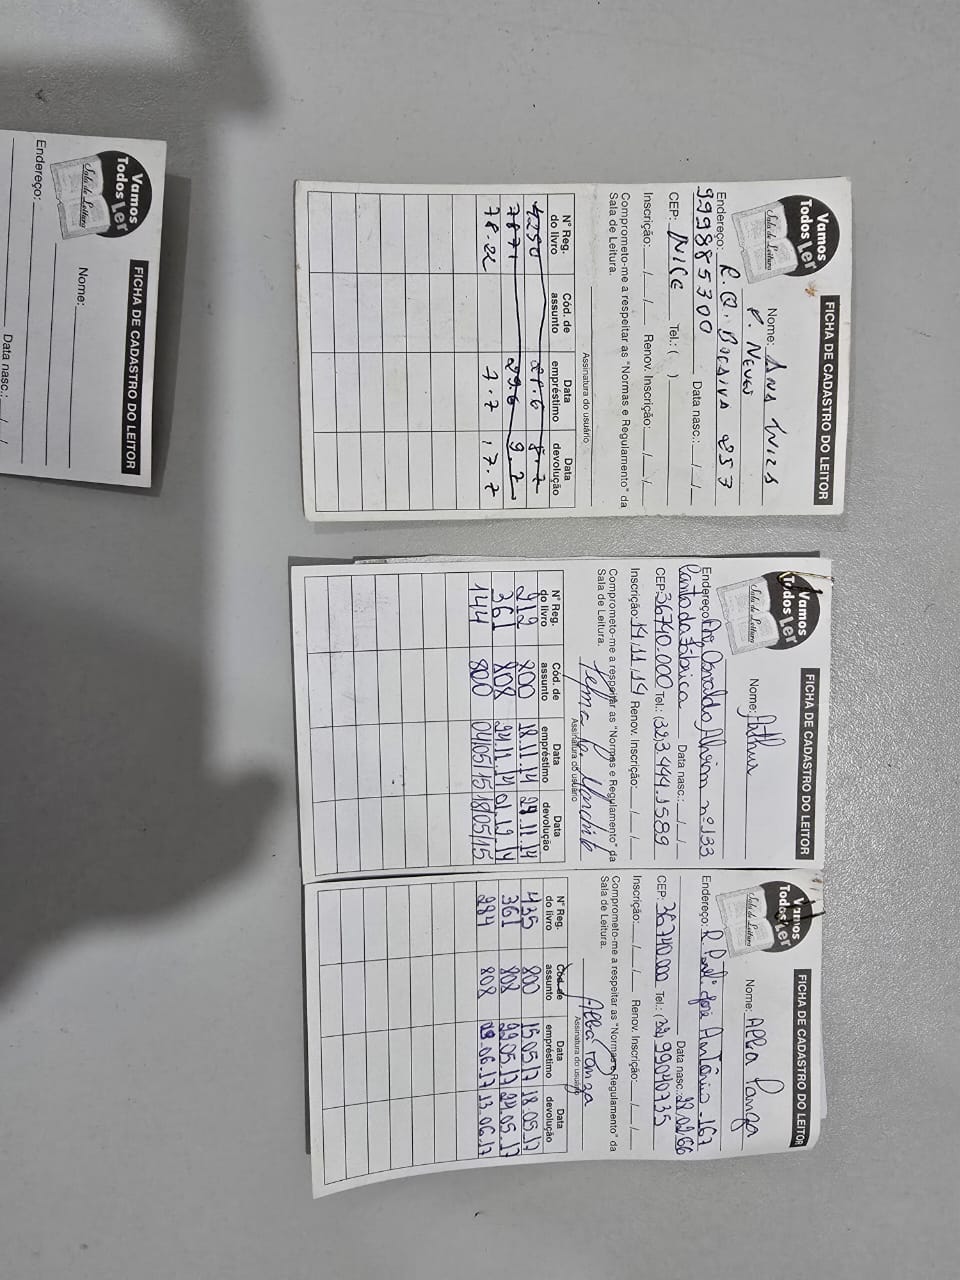 Vamos Todos Ler
Sala de Leitura
FICHA DE CADASTRO DO LEITOR
Nome: Ana Luiza
P. Neves
Endereço: R. Q. Bocaiva 253
999885300 Data nasc.: / /
CEP: NICE Tel.: ( )
Inscrição: / / Renov. Inscrição: / /
Comprometo-me a respeitar as "Normas e Regulamento" da
Sala de Leitura.
Assinatura do usuário
N° Reg. do livro Cód. de assunto Data empréstimo Data devolução
4250 28.6 8.7
7871 29.6 9.7
78-22 7.7 17.7
Vamos Todos Ler
Sala de Leitura
FICHA DE CADASTRO DO LEITOR
Nome: Arthur
Endereço: Osvaldo nº 133
Canto da Fábrica Data nasc.: / /
CEP: 36740.000 Tel.: (32) 3444.1589
Inscrição: 14/11/14 Renov. Inscrição: / /
Comprometo-me a respeitar as "Normas e Regulamento" da
Sala de Leitura.
Telma
Assinatura do usuário
N° Reg. do livro Cód. de assunto Data empréstimo Data devolução
212 800 18.11.14 24.11.14
361 808 24.11.14 01.12.14
144 800 04/05/15 18/05/15
Vamos Todos Ler
Sala de Leitura
FICHA DE CADASTRO DO LEITOR
Nome: Alba Panza
Endereço: R. José Antônio - 167
Data nasc.: 28.02.66
CEP: 36740.000 Tel.: (32) 99040735
Inscrição: / / Renov. Inscrição: / /
Comprometo-me a respeitar as "Normas e Regulamento" da
Sala de Leitura.
Alba Panza
Assinatura do usuário
N° Reg. do livro Cód. de assunto Data empréstimo Data devolução
435 800 15.05.17 18.05.17
361 808 22.05.17 24.05.17
284 808 09.06.17 13.06.17
Vamos Todos Ler
Sala de Leitura
FICHA DE CADASTRO DO LEITOR
Nome:
Endereço:
Data nasc.: / /